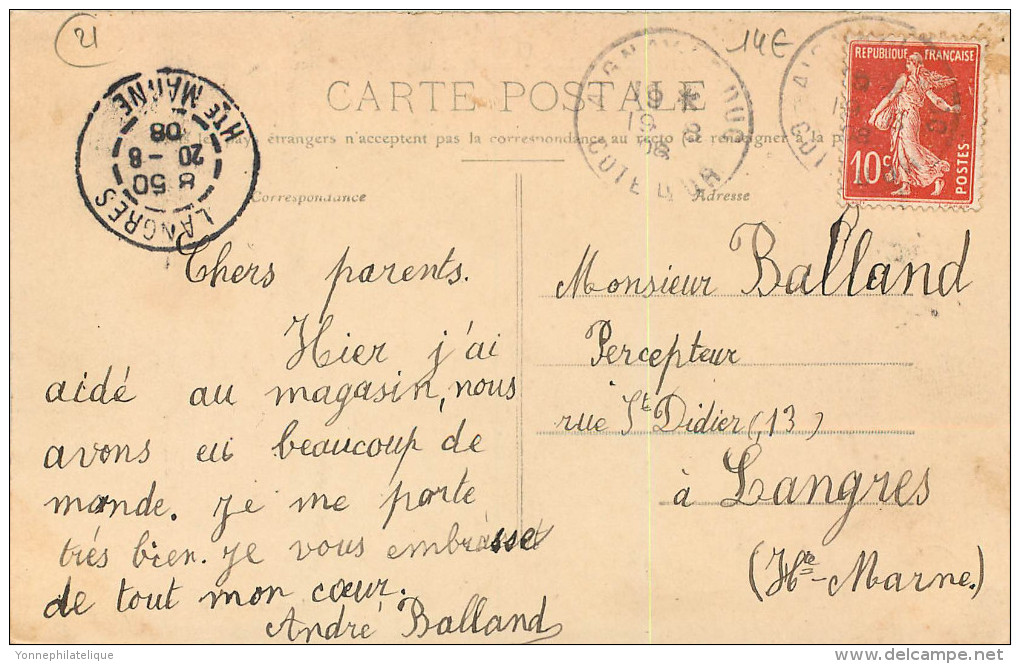 21
14€
CARTE POSTALE
étrangers n'acceptent pas la correspondance au recto (se renseigner à la
REPUBLIQUE FRANÇAISE
10c
POSTES
HTE MARNE
08
20 - 8
8 50
LANGRES
COTE D'OR
Correspondance
Adresse
Chers parents.
Hier j'ai
aidé au magasin, nous
avons eu beaucoup de
monde. Je me porte
très bien. Je vous embrasse
de tout mon cœur.
André Balland
Monsieur Balland
Percepteur
rue St Didier (13)
à Langres
(Hte-Marne.)
Yonnephilatelique
delcampe.net